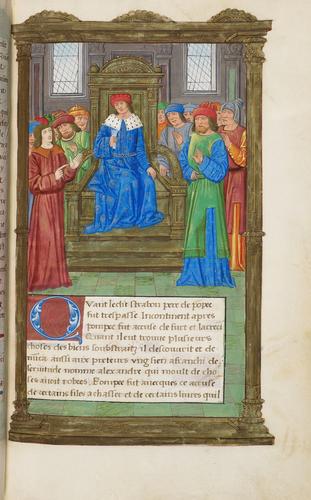 Quant ledit strabon pere de popee
fut trespasse Incontinent apres
pompee fut accuse de furt et larrecī
Quant il eut trouve plusieurs
choses des biens soubstraitz il descouvrit et de
aussi aux preteurs ung sien afranchi de
servitude nomme alexandre qui moult de cho
ses avoit robees. Pompee fut avecques ce accuse
de certains filez a chasser et de certains livres quil